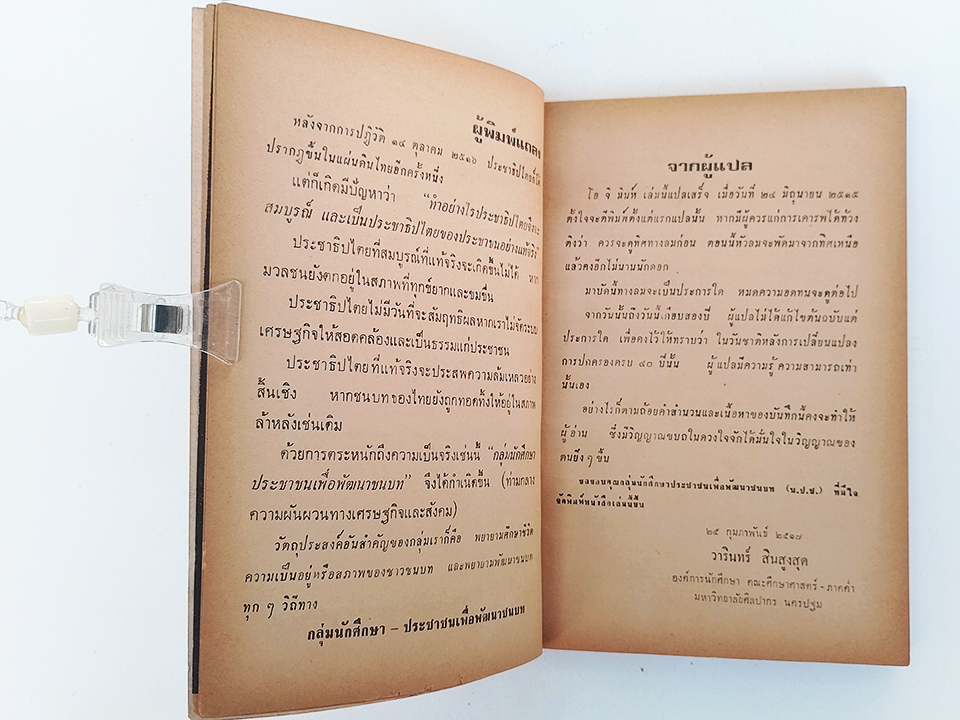 ผู้พิมพ์แถลง
หลังจากการปฏิวัติ ๑๔ ตุลาคม ๒๕๑๖ ประชาธิปไตยก็ได้
ปรากฏขึ้นในแผ่นดินไทยอีกครั้งหนึ่ง
แต่ก็เกิดมีปัญหาว่า "ทำอย่างไรประชาธิปไตยจึงจะ
สมบูรณ์ และเป็นประชาธิปไตยของประชาชนอย่างแท้จริง"
ประชาธิปไตยที่สมบูรณ์ที่แท้จริงจะเกิดขึ้นไม่ได้ หาก
มวลชนยังตกอยู่ในสภาพที่ทุกข์ยากและขมขื่น
ประชาธิปไตยไม่มีวันที่จะสัมฤทธิผลหากเราไม่จัดระบบ
เศรษฐกิจให้สอดคล้องและเป็นธรรมแก่ประชาชน
ประชาธิปไตยที่แท้จริงจะประสพความล้มเหลวอย่าง
สิ้นเชิง หากชนบทของไทยยังถูกทอดทิ้งให้อยู่ในสภาพ
ล้าหลังเช่นเดิม
ด้วยการตระหนักถึงความเป็นจริงเช่นนี้ "กลุ่มนักศึกษา
ประชาชนเพื่อพัฒนาชนบท" จึงได้กำเนิดขึ้น (ท่ามกลาง
ความผันผวนทางเศรษฐกิจและสังคม)
วัตถุประสงค์อันสำคัญของกลุ่มเราก็คือ พยายามศึกษาชีวิต
ความเป็นอยู่หรือสภาพของชาวชนบท และพยายามพัฒนาชนบท
ทุก ๆ วิถีทาง
กลุ่มนักศึกษา – ประชาชนเพื่อพัฒนาชนบท
จากผู้แปล
โฮ จิ มินห์ เล่มนี้แปลเสร็จ เมื่อวันที่ ๒๔ มิถุนายน ๒๕๑๕
ตั้งใจจะตีพิมพ์ตั้งแต่แรกแปลนั้น หากมีผู้ควรแก่การเคารพได้ท้วง
ติงว่า ควรจะดูทิศทางลมก่อน ตอนนี้หัวลมจะพัดมาจากทิศเหนือ
แล้วคงอีกไม่นานนักดอก
มาบัดนี้ทางลมจะเป็นประการใด หมดความอดทนจะดูต่อไป
จากวันนั้นถึงวันนี้เกือบสองปี ผู้แปลไม่ได้แก้ไขต้นฉบับแต่
ประการใด เพื่อคงไว้ให้ทราบว่า ในวันชาติหลังการเปลี่ยนแปลง
การปกครองครบ ๔๐ ปีนั้น ผู้แปลมีความรู้ความสามารถเท่า
นั้นเอง
อย่างไรก็ตามถ้อยคำสำนวนและเนื้อหาของบันทึกนี้คงจะทำให้
ผู้อ่าน ซึ่งมีวิญญาณขบถในดวงใจจักได้มั่นใจในวิญญาณของ
ตนยิ่ง ๆ ขึ้น
ขอขอบคุณกลุ่มนักศึกษาประชาชนเพื่อพัฒนาชนบท (น.ป.ช.) ที่มีใจ
จัดพิมพ์หนังสือเล่มนี้ขึ้น
๒๕ กุมภาพันธ์ ๒๕๑๗
วารินทร์ สินสูงสุด
องค์การนักศึกษา คณะศึกษาศาสตร์ - ภาคค่ำ
มหาวิทยาลัยศิลปากร นครปฐม